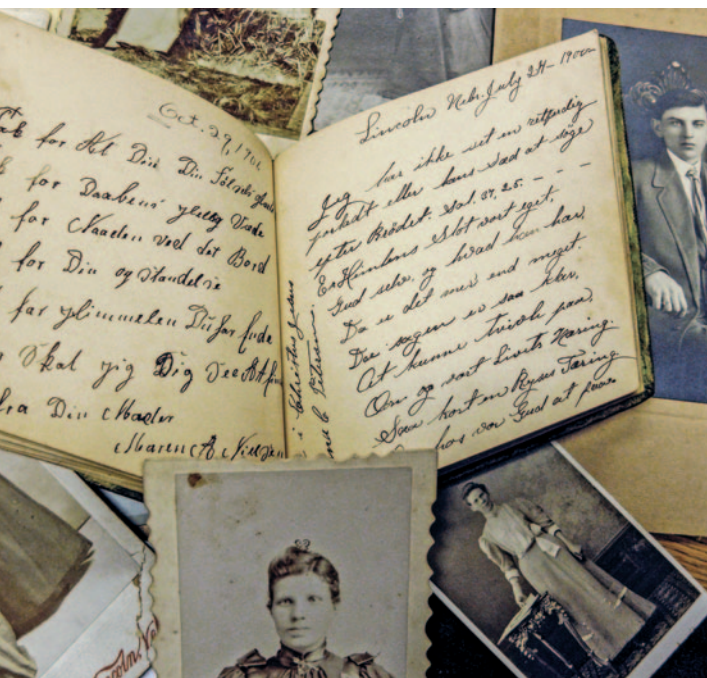 Oct. 29, 1901
for At Din Din
for Daabens
for Naaden ved dit Bord
for Din opstandelse
for Himmelen Du har
Skal jig Dig See At
fra Din Moder
Maren A Nielsen
i Christus Jesus
Lincoln Nebr. July 24 - 1900
Jeg har ikke set en retfærdig
forladt eller hans Sæd at søge
efter Brødet. Sal. 37, 25. - - -
Er Himlens Slot vort eget,
Gud selv, og hvad han har,
Da er det mer end meget.
Den sagen er saa klar.
At kunne trøste paa,
Om og vort Livets Næring
Som kort en Rejses Tæring
hos vor Gud at faae